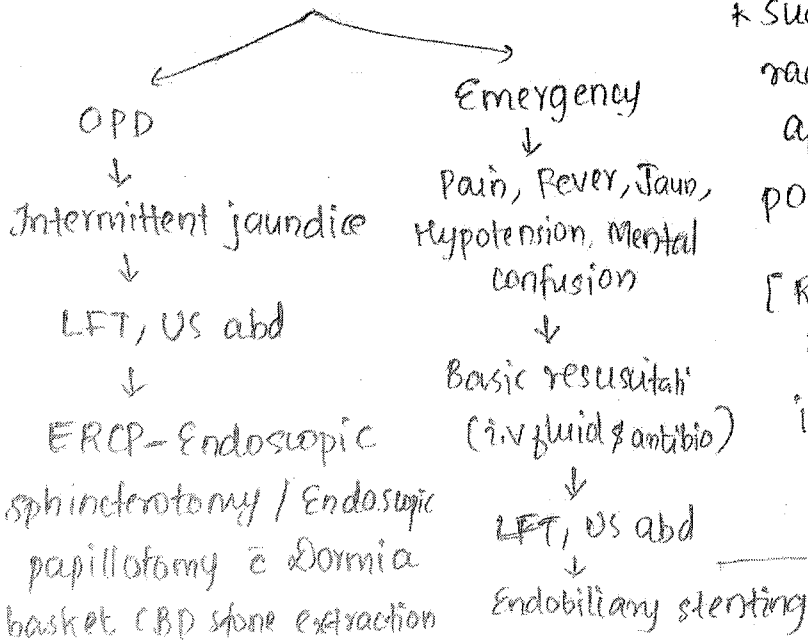 OPD
↓
Intermittent jaundice
↓
LFT, US abd
↓
ERCP - Endoscopic
sphincterotomy / Endoscopic
papillotomy c̄ Dormia
basket CBD stone extraction
Emergency
↓
Pain, Fever, Jaun,
Hypotension, Mental
confusion
↓
Basic resusitati
(i.v fluid & antibio)
↓
LFT, US abd
↓
Endobiliary stenting
* Suc